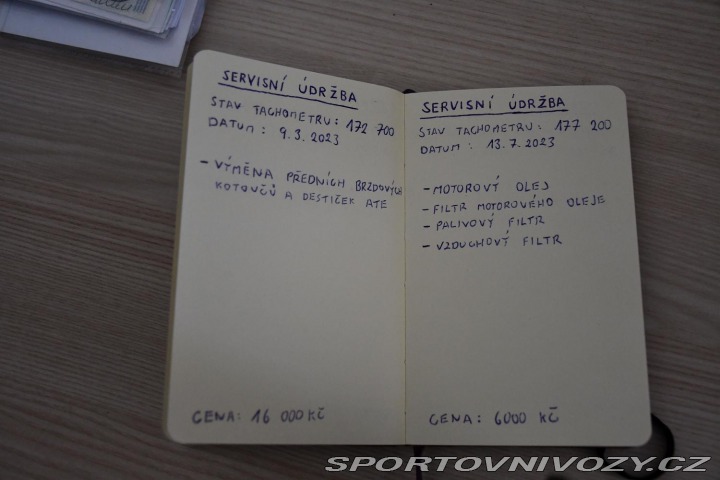 SERVISNÍ ÚDRŽBA
STAV TACHOMETRU: 172 700
DATUM: 9.3.2023
- VÝMĚNA PŘEDNÍCH BRZDOVÝCH
KOTOUČŮ A DESTIČEK ATE
CENA: 16 000 KČ
SERVISNÍ ÚDRŽBA
STAV TACHOMETRU: 177 200
DATUM: 13.7.2023
- MOTOROVÝ OLEJ
- FILTR MOTOROVÉHO OLEJE
- PALIVOVÝ FILTR
- VZDUCHOVÝ FILTR
CENA: 6000 KČ
SPORTOVNIVOZY.CZ